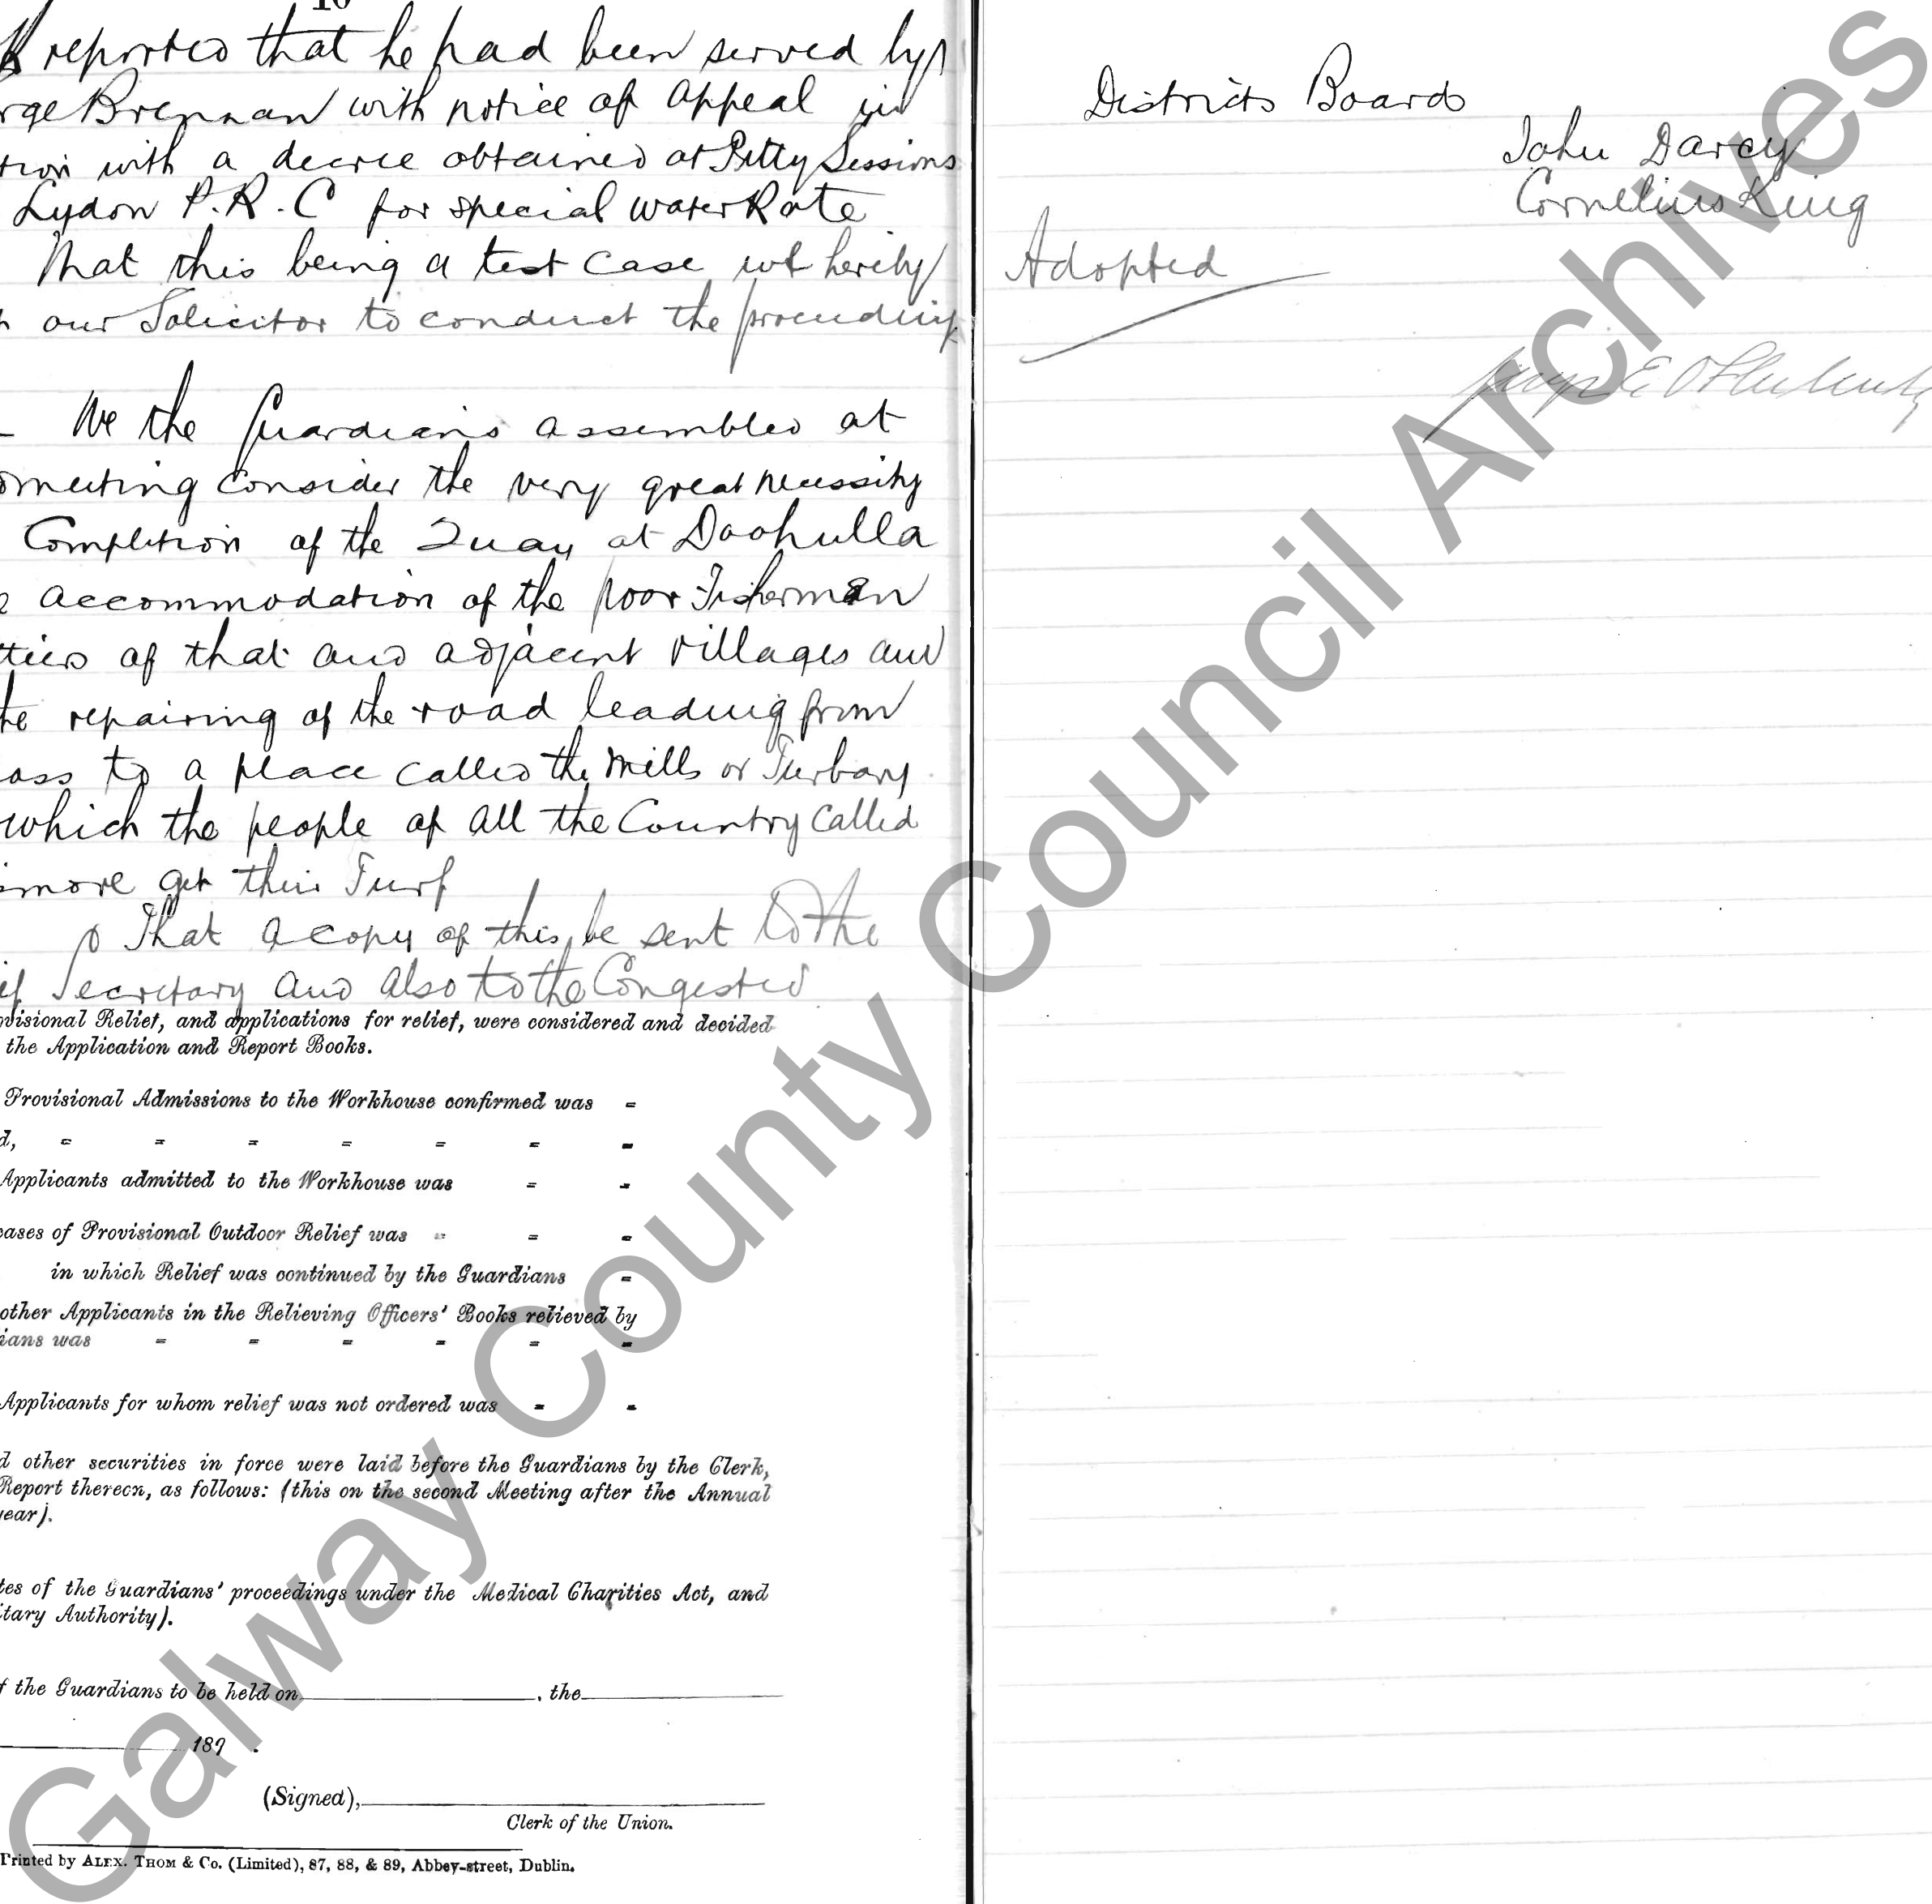 10
reported that he had been served by
rge Brennan with notice of appeal in
tion with a decree obtained at Petty Sessions
Lydon P.R.C for special water Rate
That this being a test case we hereby
our Solicitor to conduct the proceedings
- We the Guardians assembled at
meeting consider the very great necessity
Completion of the Quay at Doohulla
accommodation of the poor Fisherman
of that and adjacent villages and
he repairing of the road leading from
oss to a place called the Mills or Turbary
which the people of all the Country called
more get their Turf
That a copy of this be sent to the
ef Secretary and also to the Congested
ovisional Relief, and applications for relief, were considered and decided
the Application and Report Books.
Provisional Admissions to the Workhouse confirmed was -
d, - - - - - - -
Applicants admitted to the Workhouse was - -
cases of Provisional Outdoor Relief was - - -
in which Relief was continued by the Guardians -
other Applicants in the Relieving Officers' Books relieved by
ians was - - - - - -
Applicants for whom relief was not ordered was - -
d other securities in force were laid before the Guardians by the Clerk,
Report thereon, as follows: (this on the second Meeting after the Annual
year).
tes of the Guardians' proceedings under the Medical Charities Act, and
itary Authority).
f the Guardians to be held on , the
189 .
(Signed),
Clerk of the Union.
Printed by ALEX. THOM & Co. (Limited), 87, 88, & 89, Abbey-street, Dublin.
Districts Board
John Darcy
Cornelius King
Adopted
Galway County Council Archives